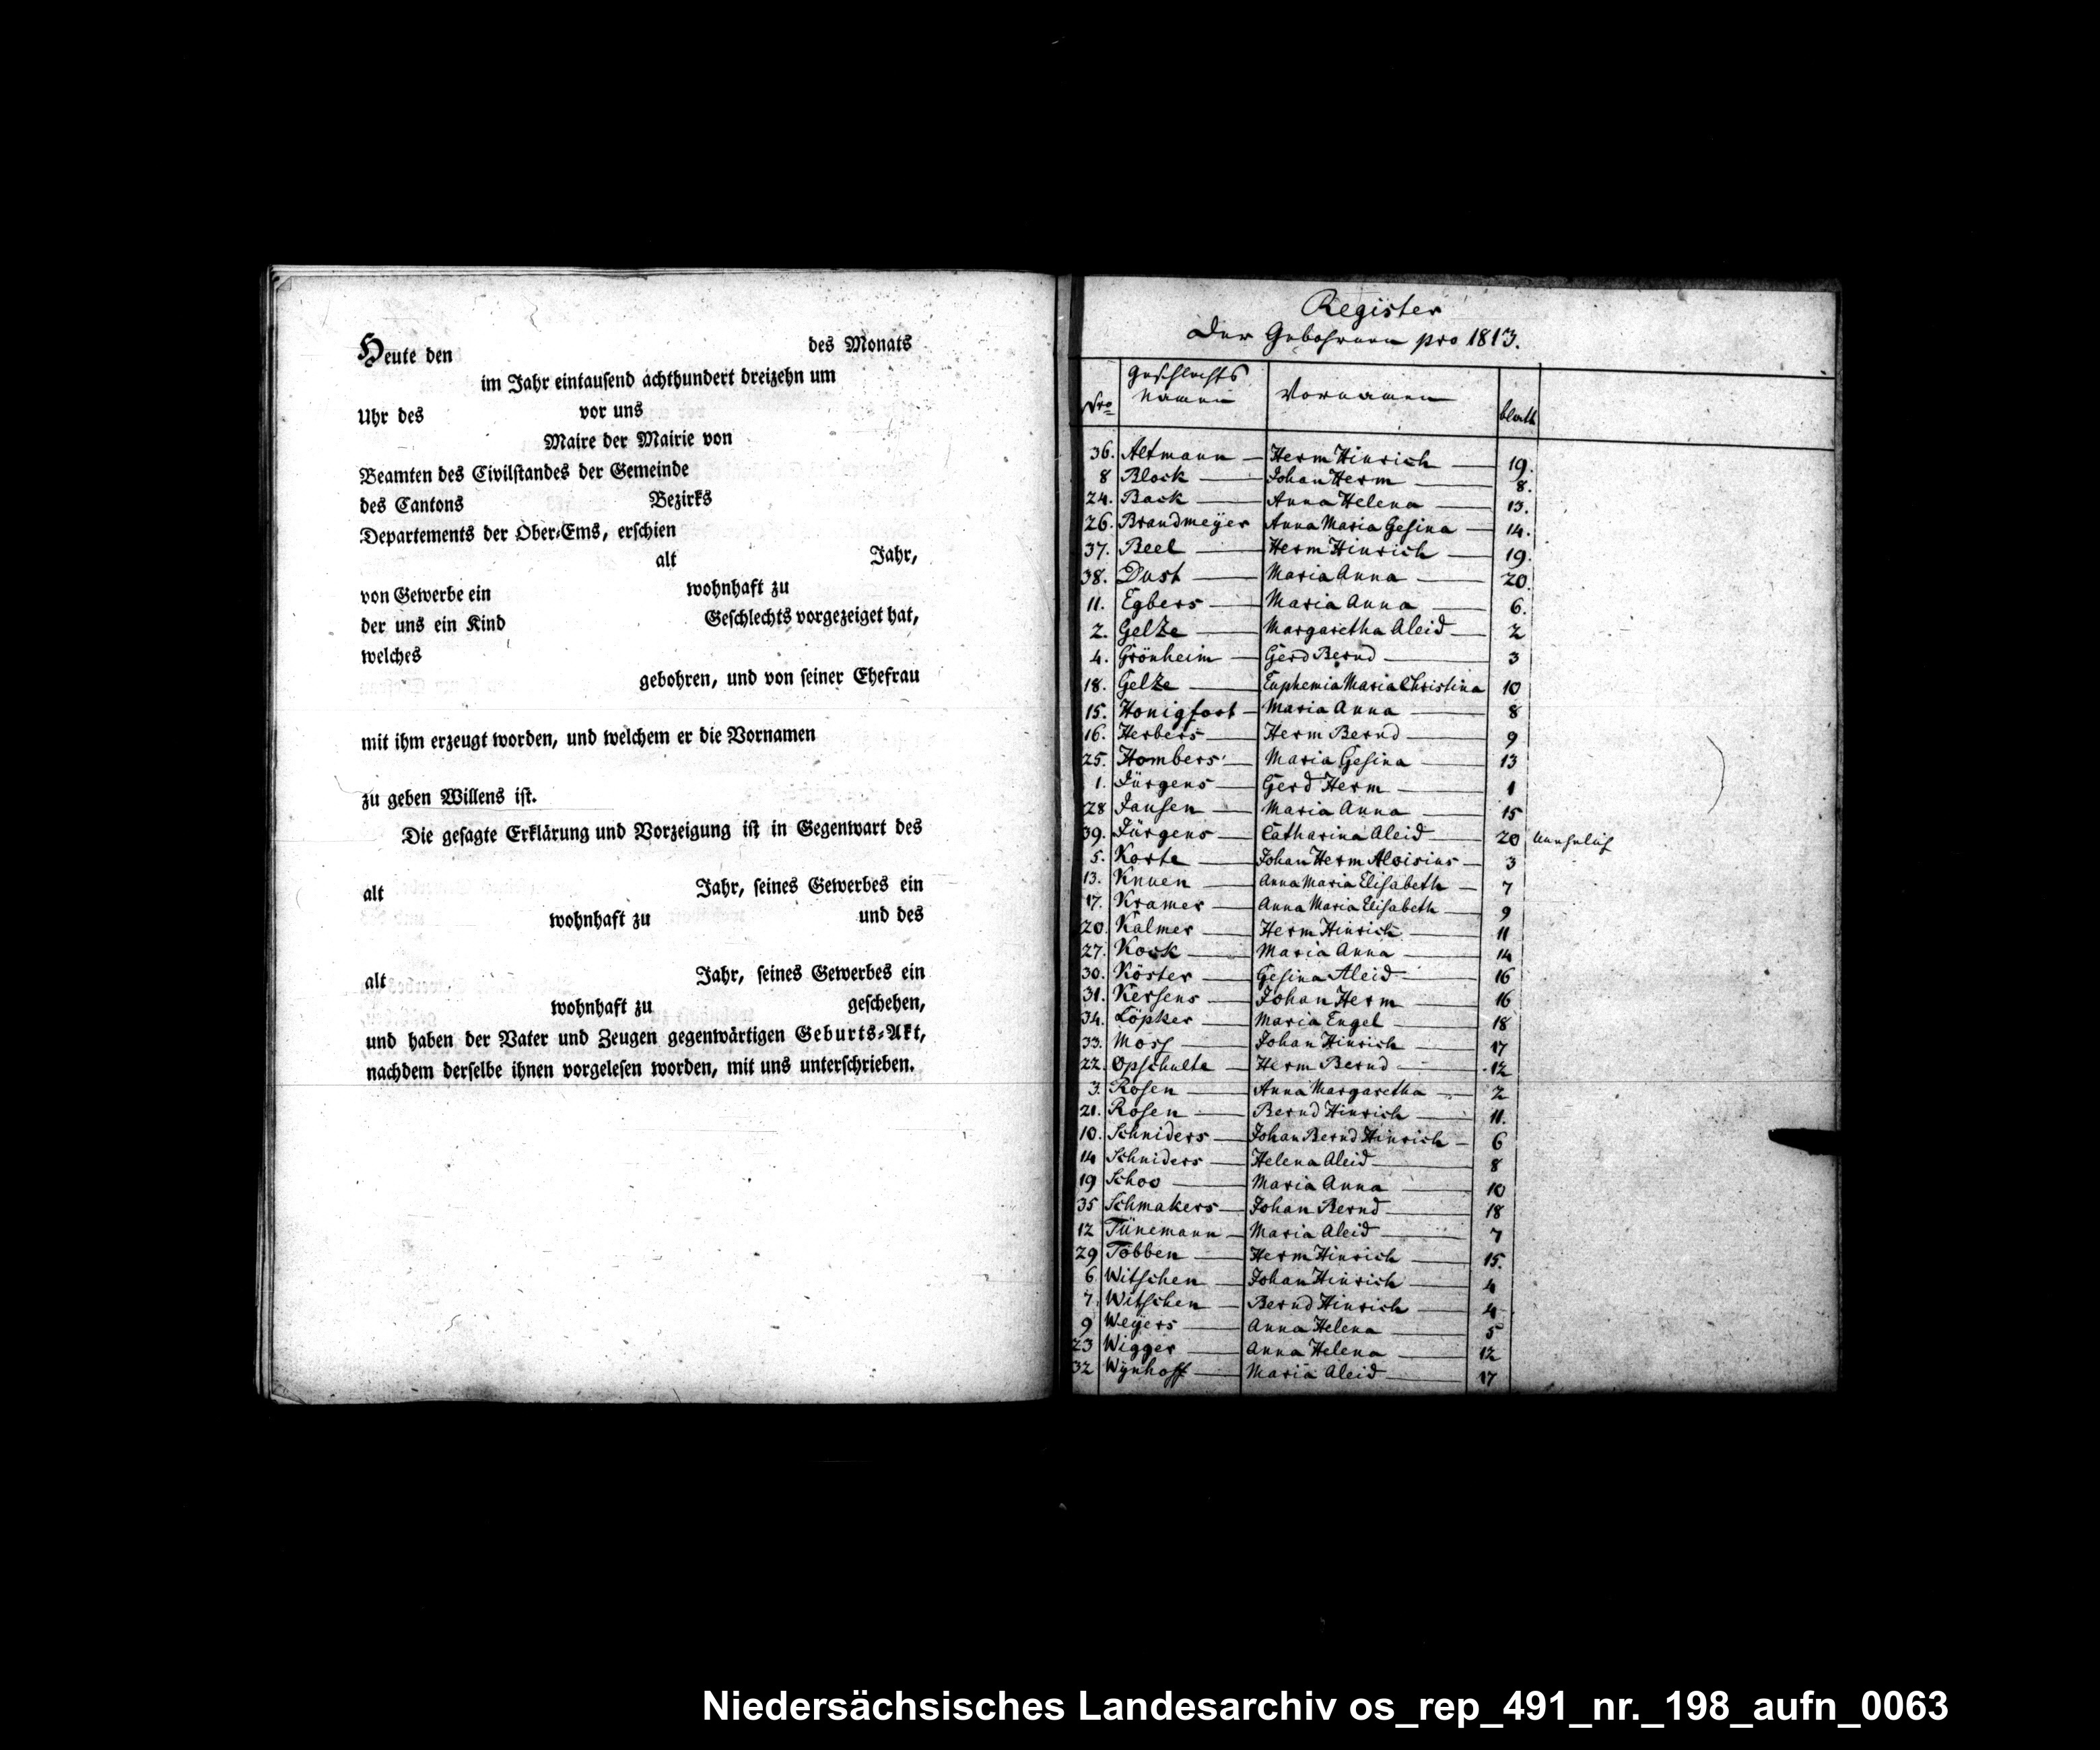 Heute den des Monats
im Jahr eintausend achthundert dreizehn um
Uhr des vor uns
Maire der Mairie von
Beamten des Civilstandes der Gemeinde
des Cantons Bezirks
Departements der Ober-Ems, erschien
alt Jahr,
von Gewerbe ein wohnhaft zu
der uns ein Kind Geschlechts vorgezeiget hat,
welches
gebohren, und von seiner Ehefrau
mit ihm erzeugt worden, und welchem er die Vornamen
zu geben Willens ist.
Die gesagte Erklärung und Vorzeigung ist in Gegenwart des
alt Jahr, seines Gewerbes ein
wohnhaft zu und des
alt Jahr, seines Gewerbes ein
wohnhaft zu geschehen,
und haben der Vater und Zeugen gegenwärtigen Geburts-Akt,
nachdem derselbe ihnen vorgelesen worden, mit uns unterschrieben.
Register
der Gebohrnen pro 1813.
Nro Geschlechts Namen Vornamen blatt
36. Altmann — Herm Hinrich — 19.
8 Block — Johan Herm — 8.
24. Back — Anna Helena — 13.
26. Brandmeÿer Anna Maria Gesina — 14.
37. Beel — Herm Hinrich — 19.
38. Dust — Maria Anna — 20
11. Egbers — Maria Anna — 6.
2. Gelze — Margaretha Aleid — 2
4. Grönheim — Gerd Bernd — 3
18. Gelze — Euphemia Maria Christina 10
15. Honigfort — Maria Anna — 8
16. Herbers — Herm Bernd — 9
25. Hombers — Maria Gesina — 13
1. Jürgens — Gerd Herm — 1
28 Jansen — Maria Anna — 15
39. Jürgens — Catharina Aleid — 20 unehelich
5. Korte — Johan Herm Aloisius — 3
13. Knuen — Anna Maria Elisabeth — 7
17. Kramer — Anna Maria Elisabeth — 9
20. Kalmer — Herm Hinrich — 11
27. Kock — Maria Anna — 14
30. Köster — Gesina Aleid — 16
31. Kersens — Johan Herm — 16
34. Löpker — Maria Engel — 18
33. Moss — Johan Hinrich — 17
22. Opschulte — Herm Bernd — 12
3. Rosen — Anna Margaretha — 2
21. Rosen — Bernd Hinrich — 11.
10. Schniders — Johan Bernd Hinrich — 6
14 Schniders — Helena Aleid — 8
19 Schoo — Maria Anna — 10
35 Schmakers — Johan Bernd — 18
12 Tünemann — Maria Aleid — 7
29 Többen — Herm Hinrich — 15.
6 Witschen — Johan Hinrich — 4
7. Witschen — Bernd Hinrich — 4
9 Weÿers — Anna Helena — 5
23 Wigger — Anna Helena — 12
32 Wÿnhoff — Maria Aleid — 17
Niedersächsisches Landesarchiv os_rep_491_nr._198_aufn_0063